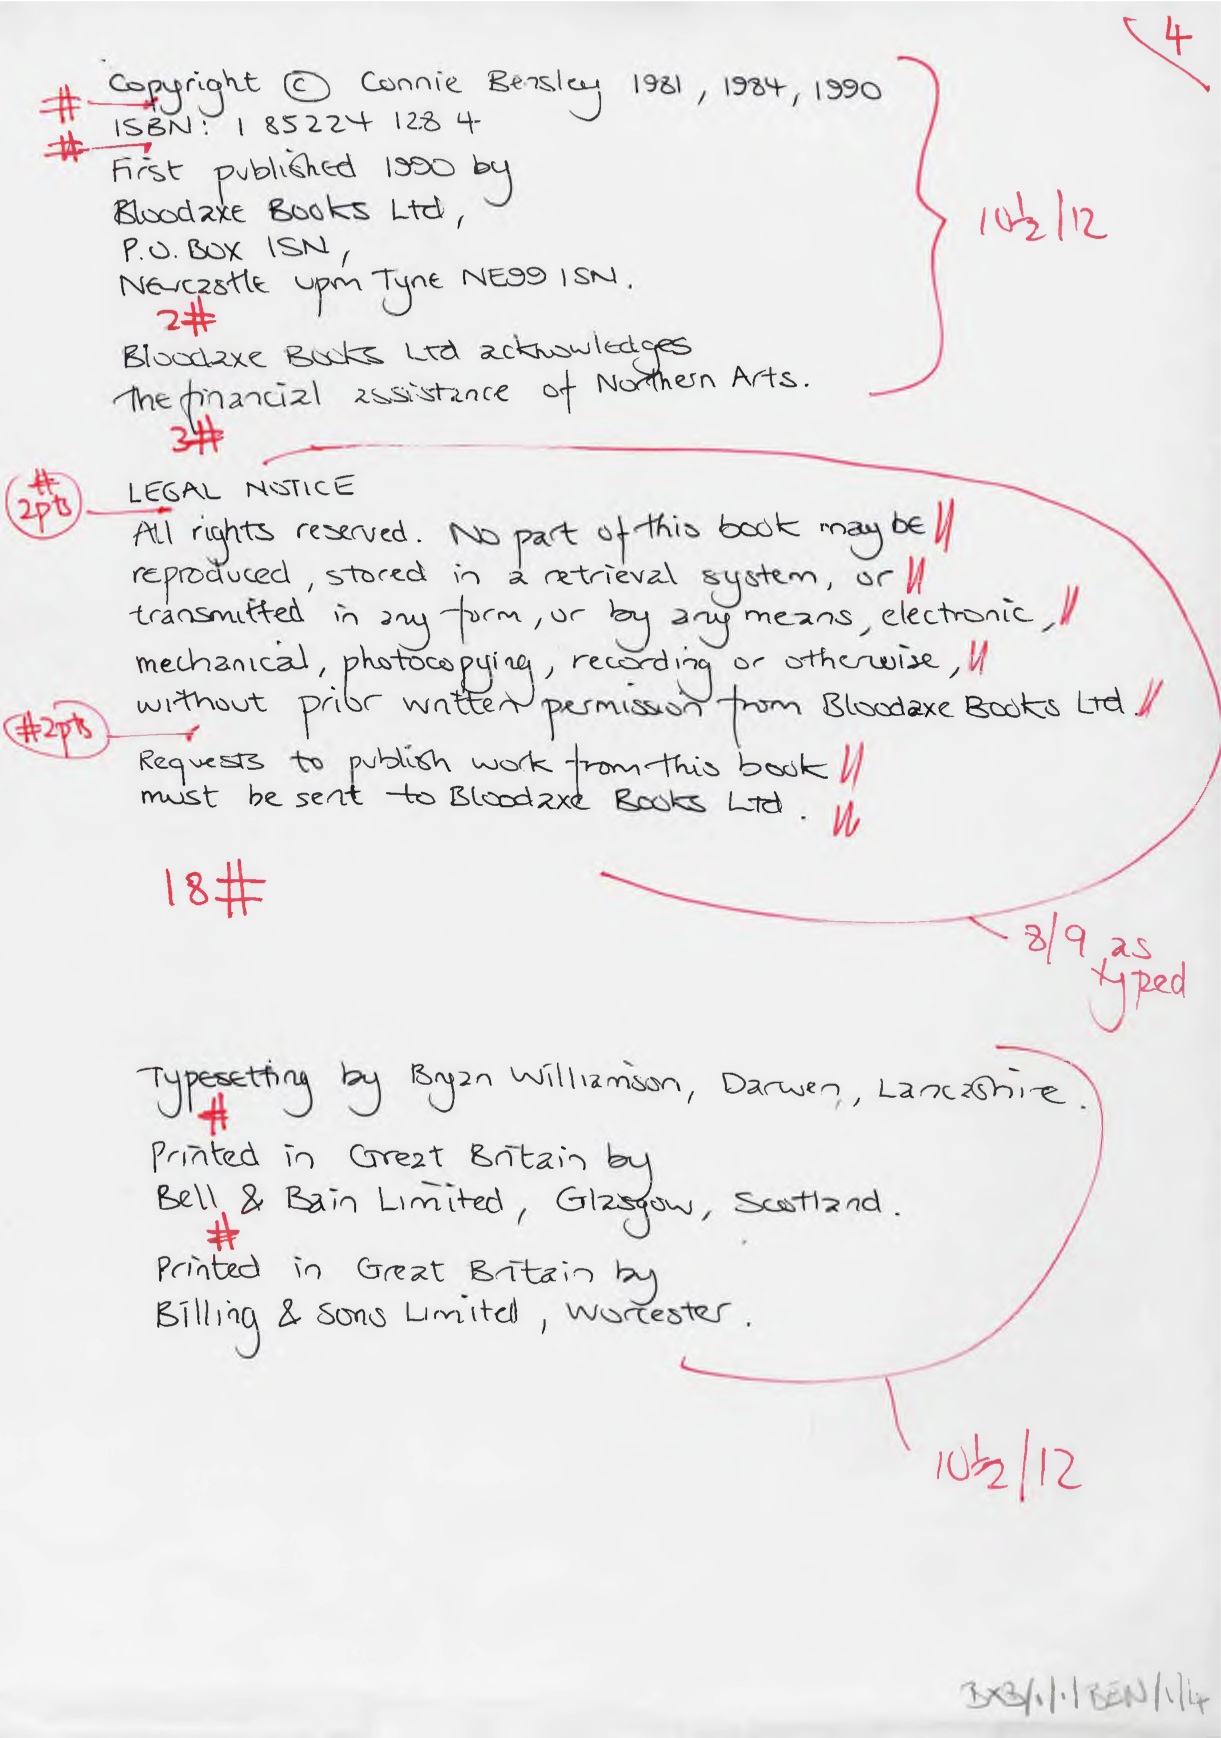 4
Copyright © Connie Bensley 1981, 1984, 1990
#
ISBN: 1 85224 128 4
#
First published 1990 by
Bloodaxe Books Ltd,
P.O. Box 1SN,
Newcastle upon Tyne NE99 1SN.
10½/12
2#
Bloodaxe Books Ltd acknowledges
the financial assistance of Northern Arts.
3#
LEGAL NOTICE
# 2pts
All rights reserved. No part of this book may be
reproduced, stored in a retrieval system, or
transmitted in any form, or by any means, electronic,
mechanical, photocopying, recording or otherwise,
without prior written permission from Bloodaxe Books Ltd.
#2pts
Requests to publish work from this book
must be sent to Bloodaxe Books Ltd.
18#
8/9 as
typed
Typesetting by Bryan Williamson, Darwen, Lancashire.
#
Printed in Great Britain by
Bell & Bain Limited, Glasgow, Scotland.
#
Printed in Great Britain by
Billing & Sons Limited, Worcester.
10½/12
BXB/1/1/BEN/1/4